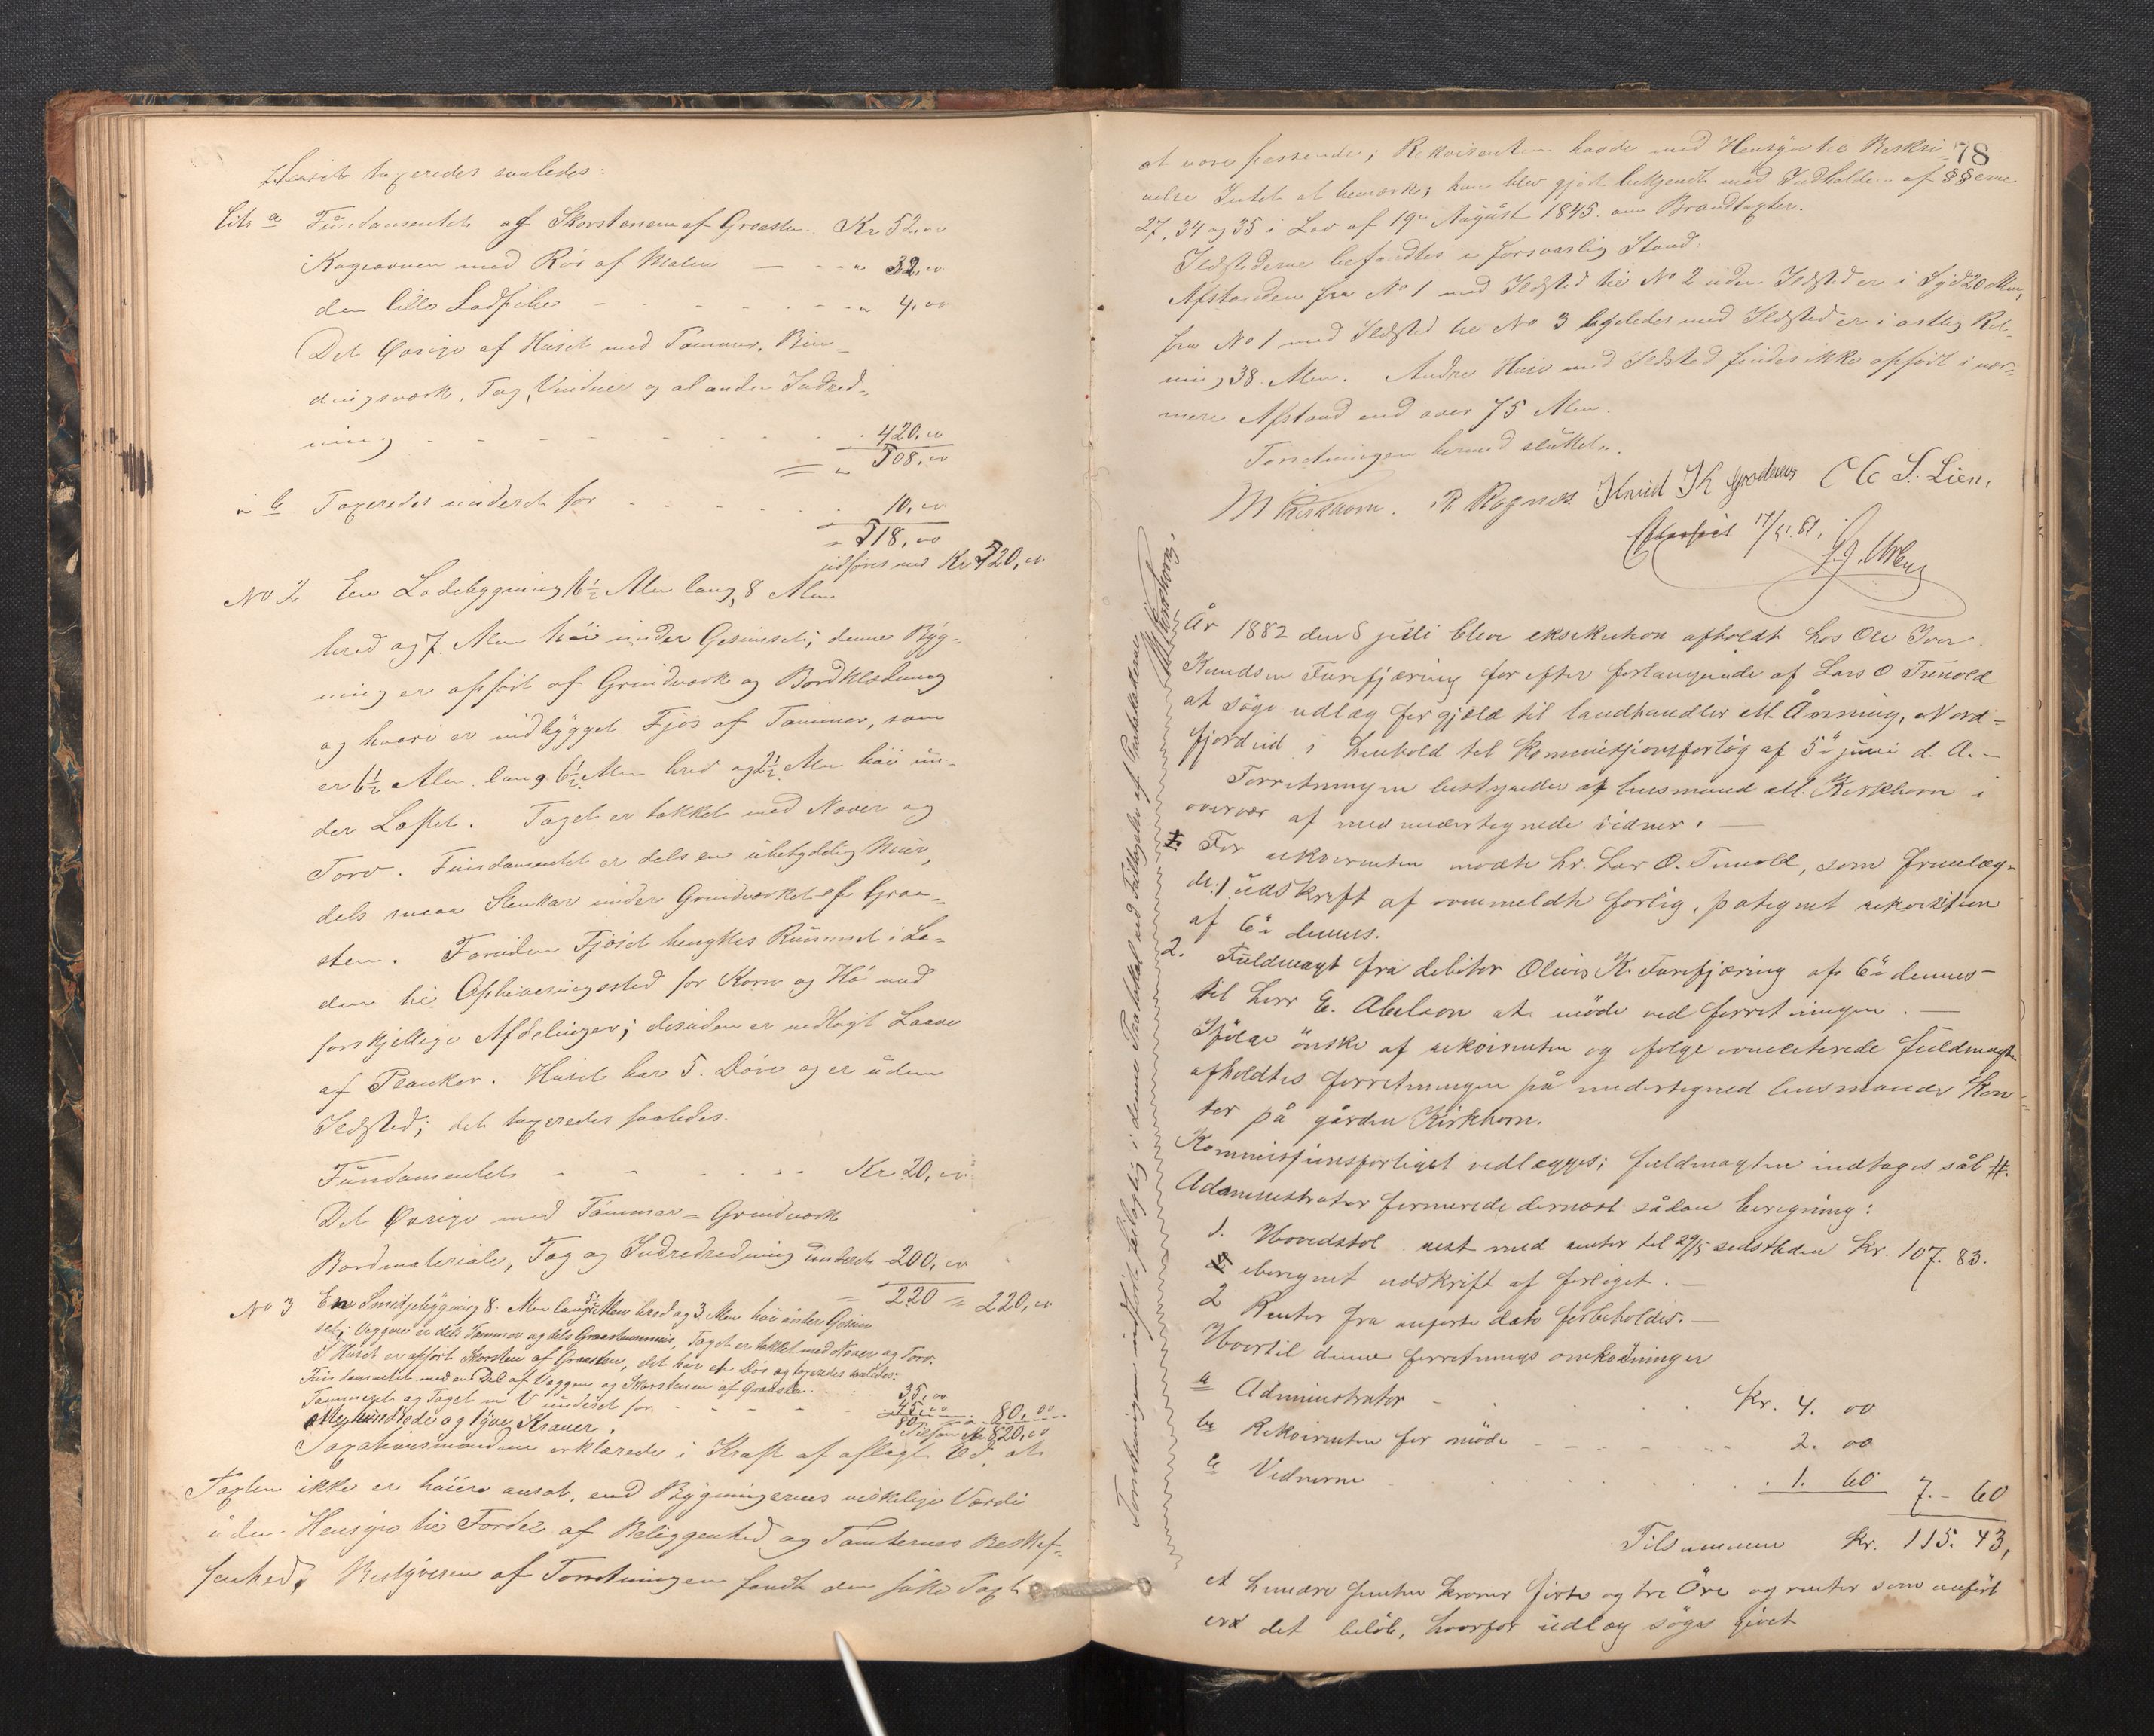 Huset taxeredes saaledes:
Litr a Fundamentet af Skorstenen af Graasten Kr 52,00
Kogeovnen med Rør af Malm — " 32,00
den lille Ladfile - - - " 4,00
Det Øvrige af Huset med Tømmer, Bin-
dingsværk, Tag, Vinduer og al anden Indred-
ning - - - 420,00
= " 508,00
" b Taxeredes underet for - - - 10,00
" 518,00
udføres med Kr 520,00
No 2 En Ladebygning 16½ Alen lang, 8 Alen
bred og 7 Alen høi under Gesimset; denne Byg-
ning er opført af Grindværk og Bordklædning
og hvori er indbygget Fjøs af Tømmer, som
er 6½ Alen lang 6½ Alen bred og 2½ Alen høi un-
der Loftet. Taget er tækket med Næver og
Torv. Fundamentet er dels en ubetydelig Mur,
dels smaa Stenkar under Grindværket af Graa-
sten. Foruden Fjøset benyttes Rummet i La-
den til Opbevaringssted for Korn og Hø med
forskjellige Afdelinger; desuden er nedlagt Laave
af Planker. Huset har 5 Døre og er uden
Ildsted; det taxeredes saaledes.
Fundamentet - - - Kr 20,00
Det Øvrige med Tømmer - Grindværk
Bordmateriale, Tag og Indredning underet 200,00
= 220 = 220,00
No 3 En Smidjebygning 8 Alen lang 5½ Alen bred og 3 Alen høi under Gesim
set; Væggene er dels Tømmer og dels Graastensmur, Taget er tækket med Næver og Torv.
I Huset er opført Skorsten af Graasten, det har en Dør og taxeredes saaledes:
Fundamentet med en Del af Væggene og Skorstenen af Graasten 35,00
Tømmeret og Taget m V underet for - - - 45,00
80,00 80,00
Otte hundrede og tyve Kroner. Tilsam Kr 820,00
Taxationsmændene erklærede i Kraft af aflagt Ed, at
Taxten ikke er høiere ansat, end Bygningernes virkelige Værdi
uden Hensyn til Fordel af Beliggenhed og Tomternes Beskaf-
fenhed. Bestyreren af Forretningen fandt den satte Taxt
78
at være passende; Rekvirenten havde med Hensyn til Beskri-
velse Intet at bemærke; han blev gjort bekjendt med Indholdet af §§erne
27, 34 og 35 i Lov af 19de August 1845 om Brandtaxter.
Ildstederne befandtes i forsvarlig Stand.
Afstanden fra No 1 med Ildsted til No 2 uden Ildsted er i Syd 20 Alen,
fra No 1 med Ildsted til No 3 ligeledes med Ildsted er i østlig Ret-
ning 38 Alen. Andre Huse med Ildsted findes ikke opført i nær-
mere Afstand end over 75 Alen.
Forretningen hermed sluttet.
M Kirkhorn. R Rognes Knud Ole S. Lien.
17/ 81.
Forretningen indført feilagtig i denne Protokol ved Kirkhorn.
År 1882 den 8 juli blev eksekution afholdt hos Ole Iver
Knudsen Furefjæring for efter forlangende af Lars O Tunold
at søge udlæg for gjæld til landhandler M. Ånning, Nord-
fjordeid i henhold til kommissionsforlig af 5te juni d. A. —
Forretningen bestyredes af lensmand M. Kirkhorn i
overvær af medundertegnede vidner. —
For rekvirenten mødte hr. Lars O. Tunold, som fremlag-
de: 1 udskrift af ovenmeldte forlig, påtegnet rekvisition
af 6te dennes.
2. Fuldmagt fra debitor Olivis K. Furefjæring af 6te dennes
til herr E. Abelson at møde ved forretningen. —
Ifølge ønske af rekvirenten og ifølge fuldmagt
afholdtes forretningen på undertegned lensmands kon-
tor på gården Kirkhorn.
Kommissionsforliget vedlægges; fuldmagten indtages sål #.
Administrator formerede dernæst sådan beregning:
1. Hovedstol rest med renter til 29/5 sidstleden Kr. 107. 83.
iberegnet udskrift af forliget. —
2 Renter fra anførte dato forbeholdes. —
Hvortil denne forretnings omkostninger
a Administrator - - Kr. 4. 00
b Rekvirenten for møde - - 2. 00
c Vidnerne - - 1. 60 7.- 60
Tilsammen Kr. 115. 43,
et hundre femten kroner firti og tre Øre og renter som anført
er det beløb, hvorfor udlæg søges givet